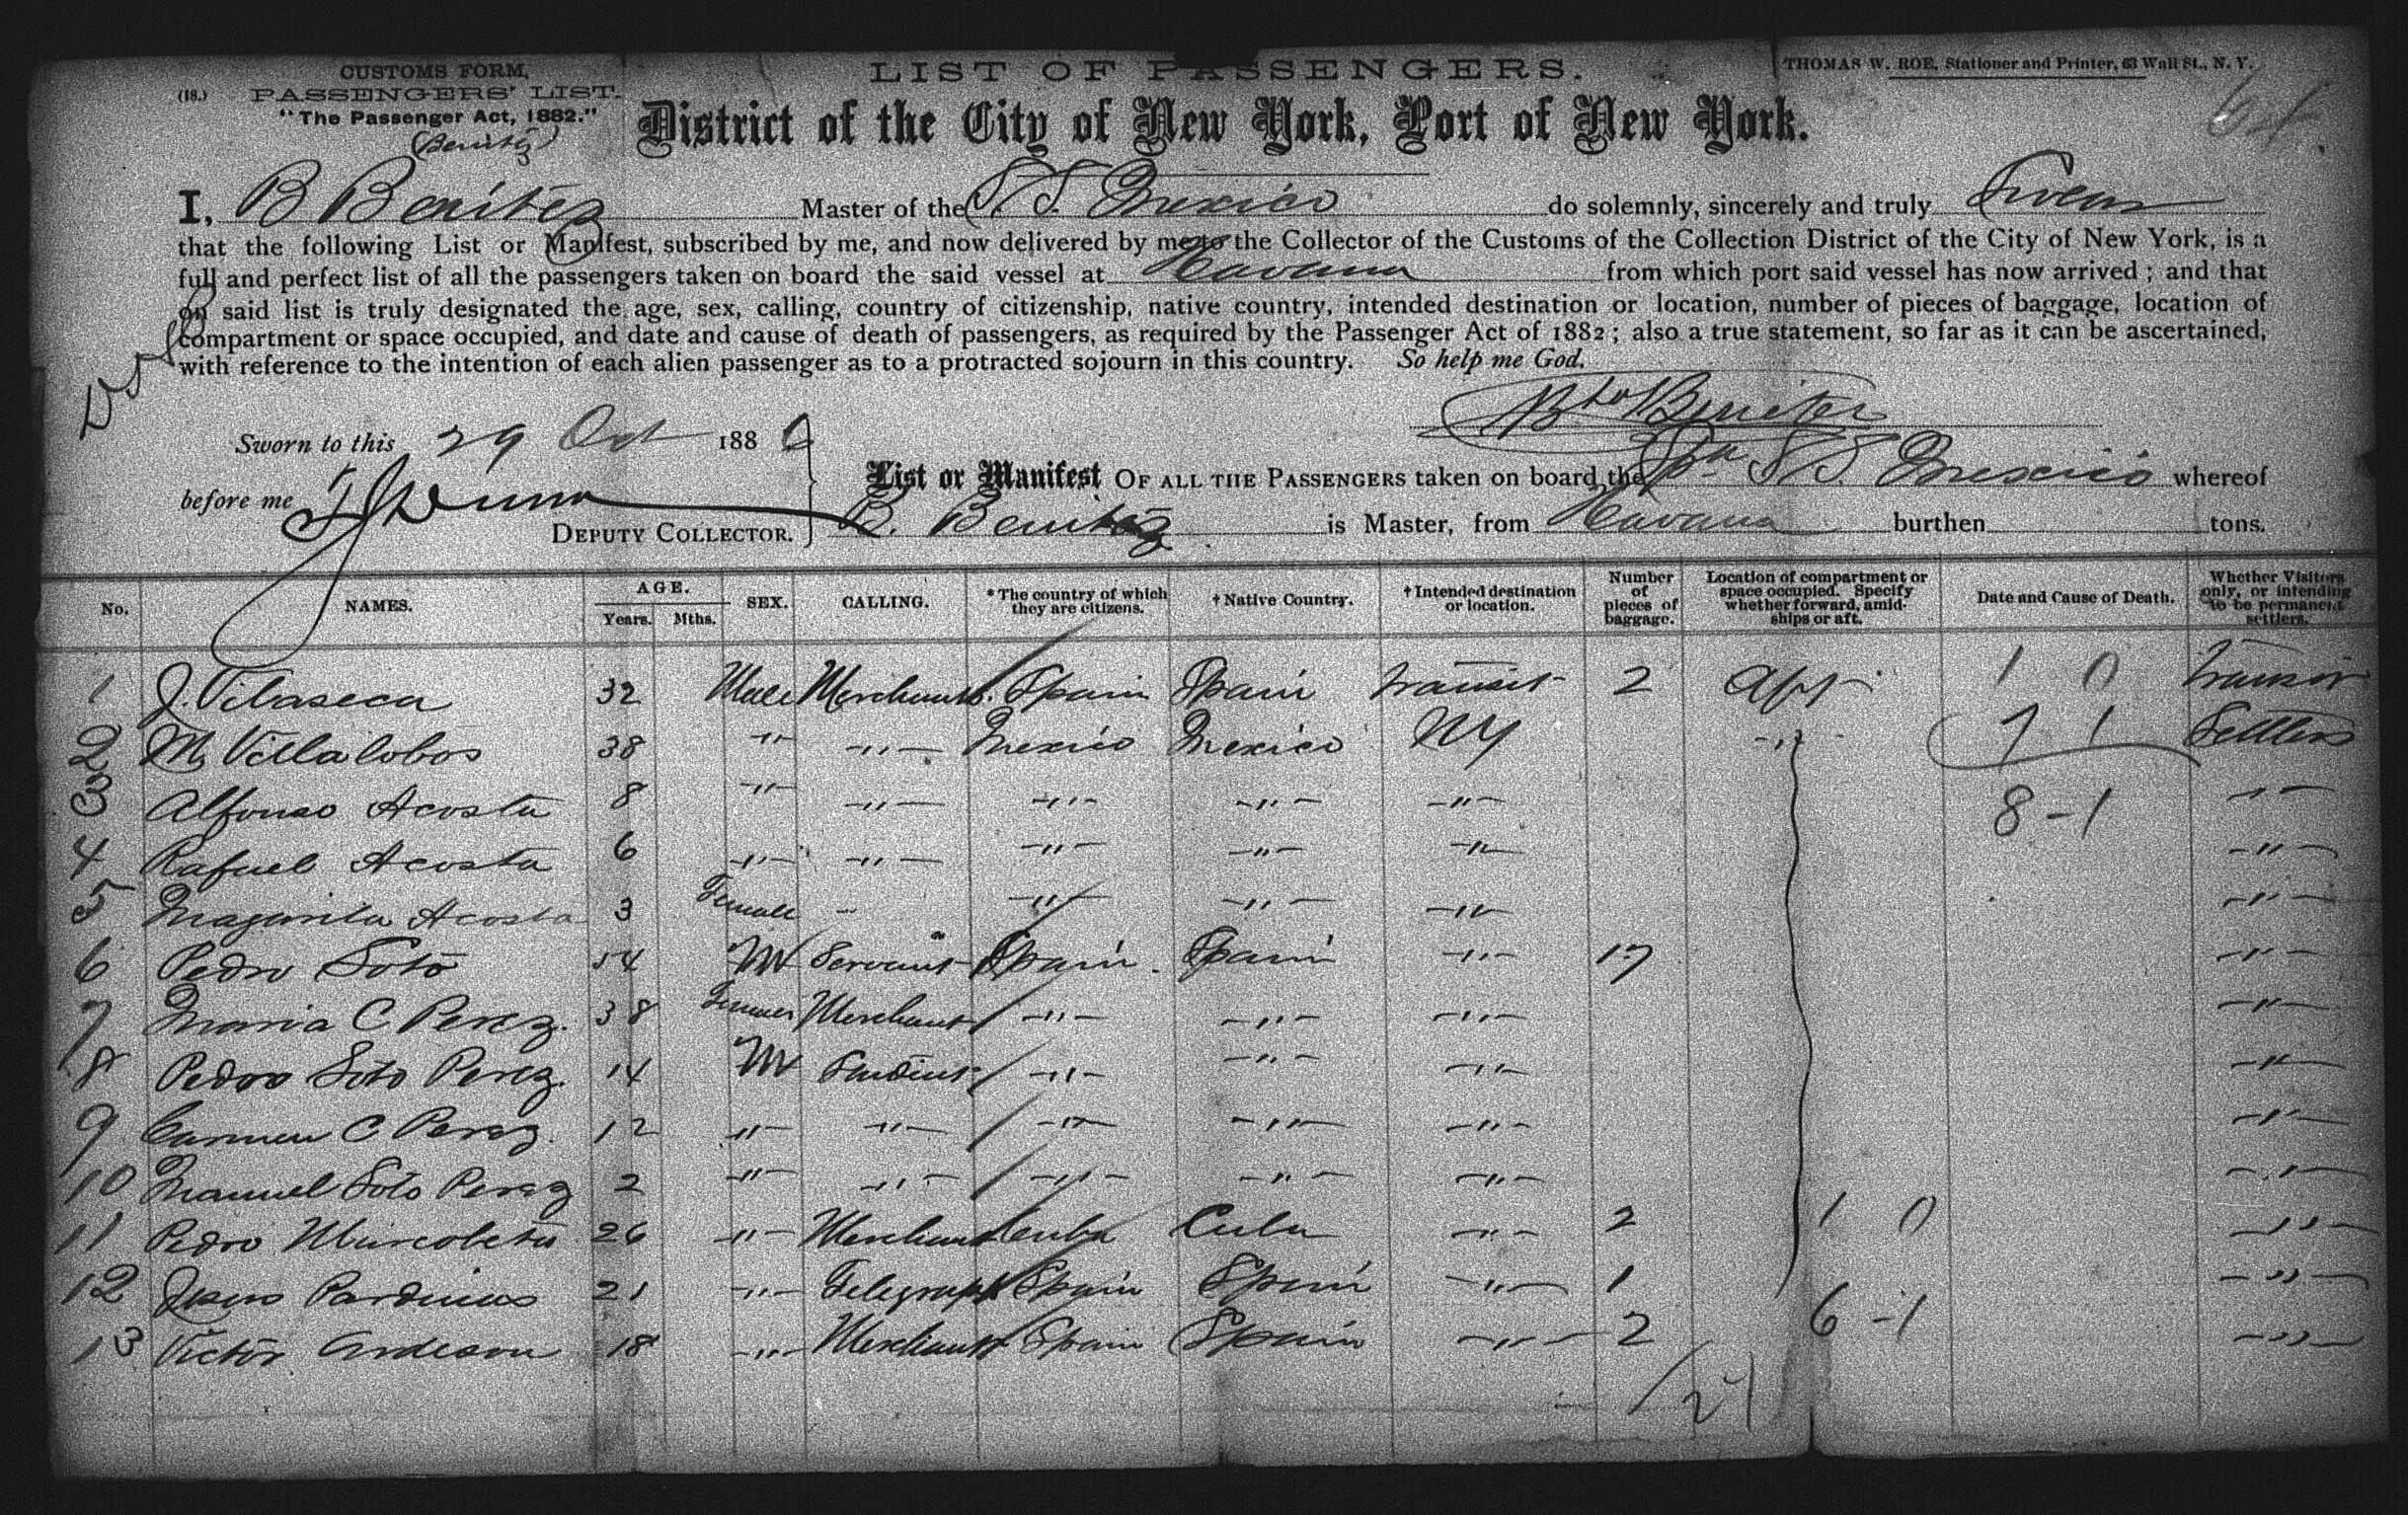 CUSTOMS FORM,
(18.) PASSENGERS' LIST.
"The Passenger Act, 1882."
(Benitez)
LIST OF PASSENGERS.
THOMAS W. ROE, Stationer and Printer, 63 Wall St., N. Y.
District of the City of New York, Port of New York.
I, B Benitez Master of the S. S. Mexico do solemnly, sincerely and truly Swear
that the following List or Manifest, subscribed by me, and now delivered by me to the Collector of the Customs of the Collection District of the City of New York, is a
full and perfect list of all the passengers taken on board the said vessel at Havana from which port said vessel has now arrived; and that
on said list is truly designated the age, sex, calling, country of citizenship, native country, intended destination or location, number of pieces of baggage, location of
compartment or space occupied, and date and cause of death of passengers, as required by the Passenger Act of 1882; also a true statement, so far as it can be ascertained,
with reference to the intention of each alien passenger as to a protracted sojourn in this country. So help me God.
Bto Benitez
Sworn to this 29 Oct 1886
before me
DEPUTY COLLECTOR.
List or Manifest OF ALL THE PASSENGERS taken on board the Spa S. S. Mexico whereof
B. Benitez is Master, from Havana burthen tons.
No. NAMES. AGE. Years. Mths. SEX. CALLING. *The country of which they are citizens. †Native Country. †Intended destination or location. Number of pieces of baggage. Location of compartment or space occupied. Specify whether forward, amidships or aft. Date and Cause of Death. Whether Visitors only, or intending to be permanent settlers.
1 J. Vilaseca 32 Male Merchants. Spain Spain transit 2 aft 1 0 transit
2 M. Villalobos 38 -"- -"- Mexico Mexico NY -"- 7 1 Settlers
3 Alfonso Acosta 8 -"- -"- -"- -"- -"- 8-1 -"-
4 Rafael Acosta 6 -"- -"- -"- -"- -"- -"-
5 Magarita Acosta 3 Female - -"- -"- -"- -"-
6 Pedro Soto 54 M Servant Spain. Spain -"- 17 -"-
7 Maria C Perez. 38 Merchant -"- -"- -"- -"-
8 Pedro Soto Perez. 14 M Student -"- -"- -"- -"-
9 Carmen C Perez. 12 -"- -"- -"- -"- -"- -"-
10 Manuel Soto Perez 2 -"- -"- -"- -"- -"- -"-
11 Pedro 26 -"- Merchant Cuba Cuba -"- 2 1 0 -"-
12 Pardinas 21 -"- Telegraph Spain Spain -"- 1 -"-
13 Victor Ardeson 18 -"- Merchant Spain Spain -"- 2 6-1 -"-